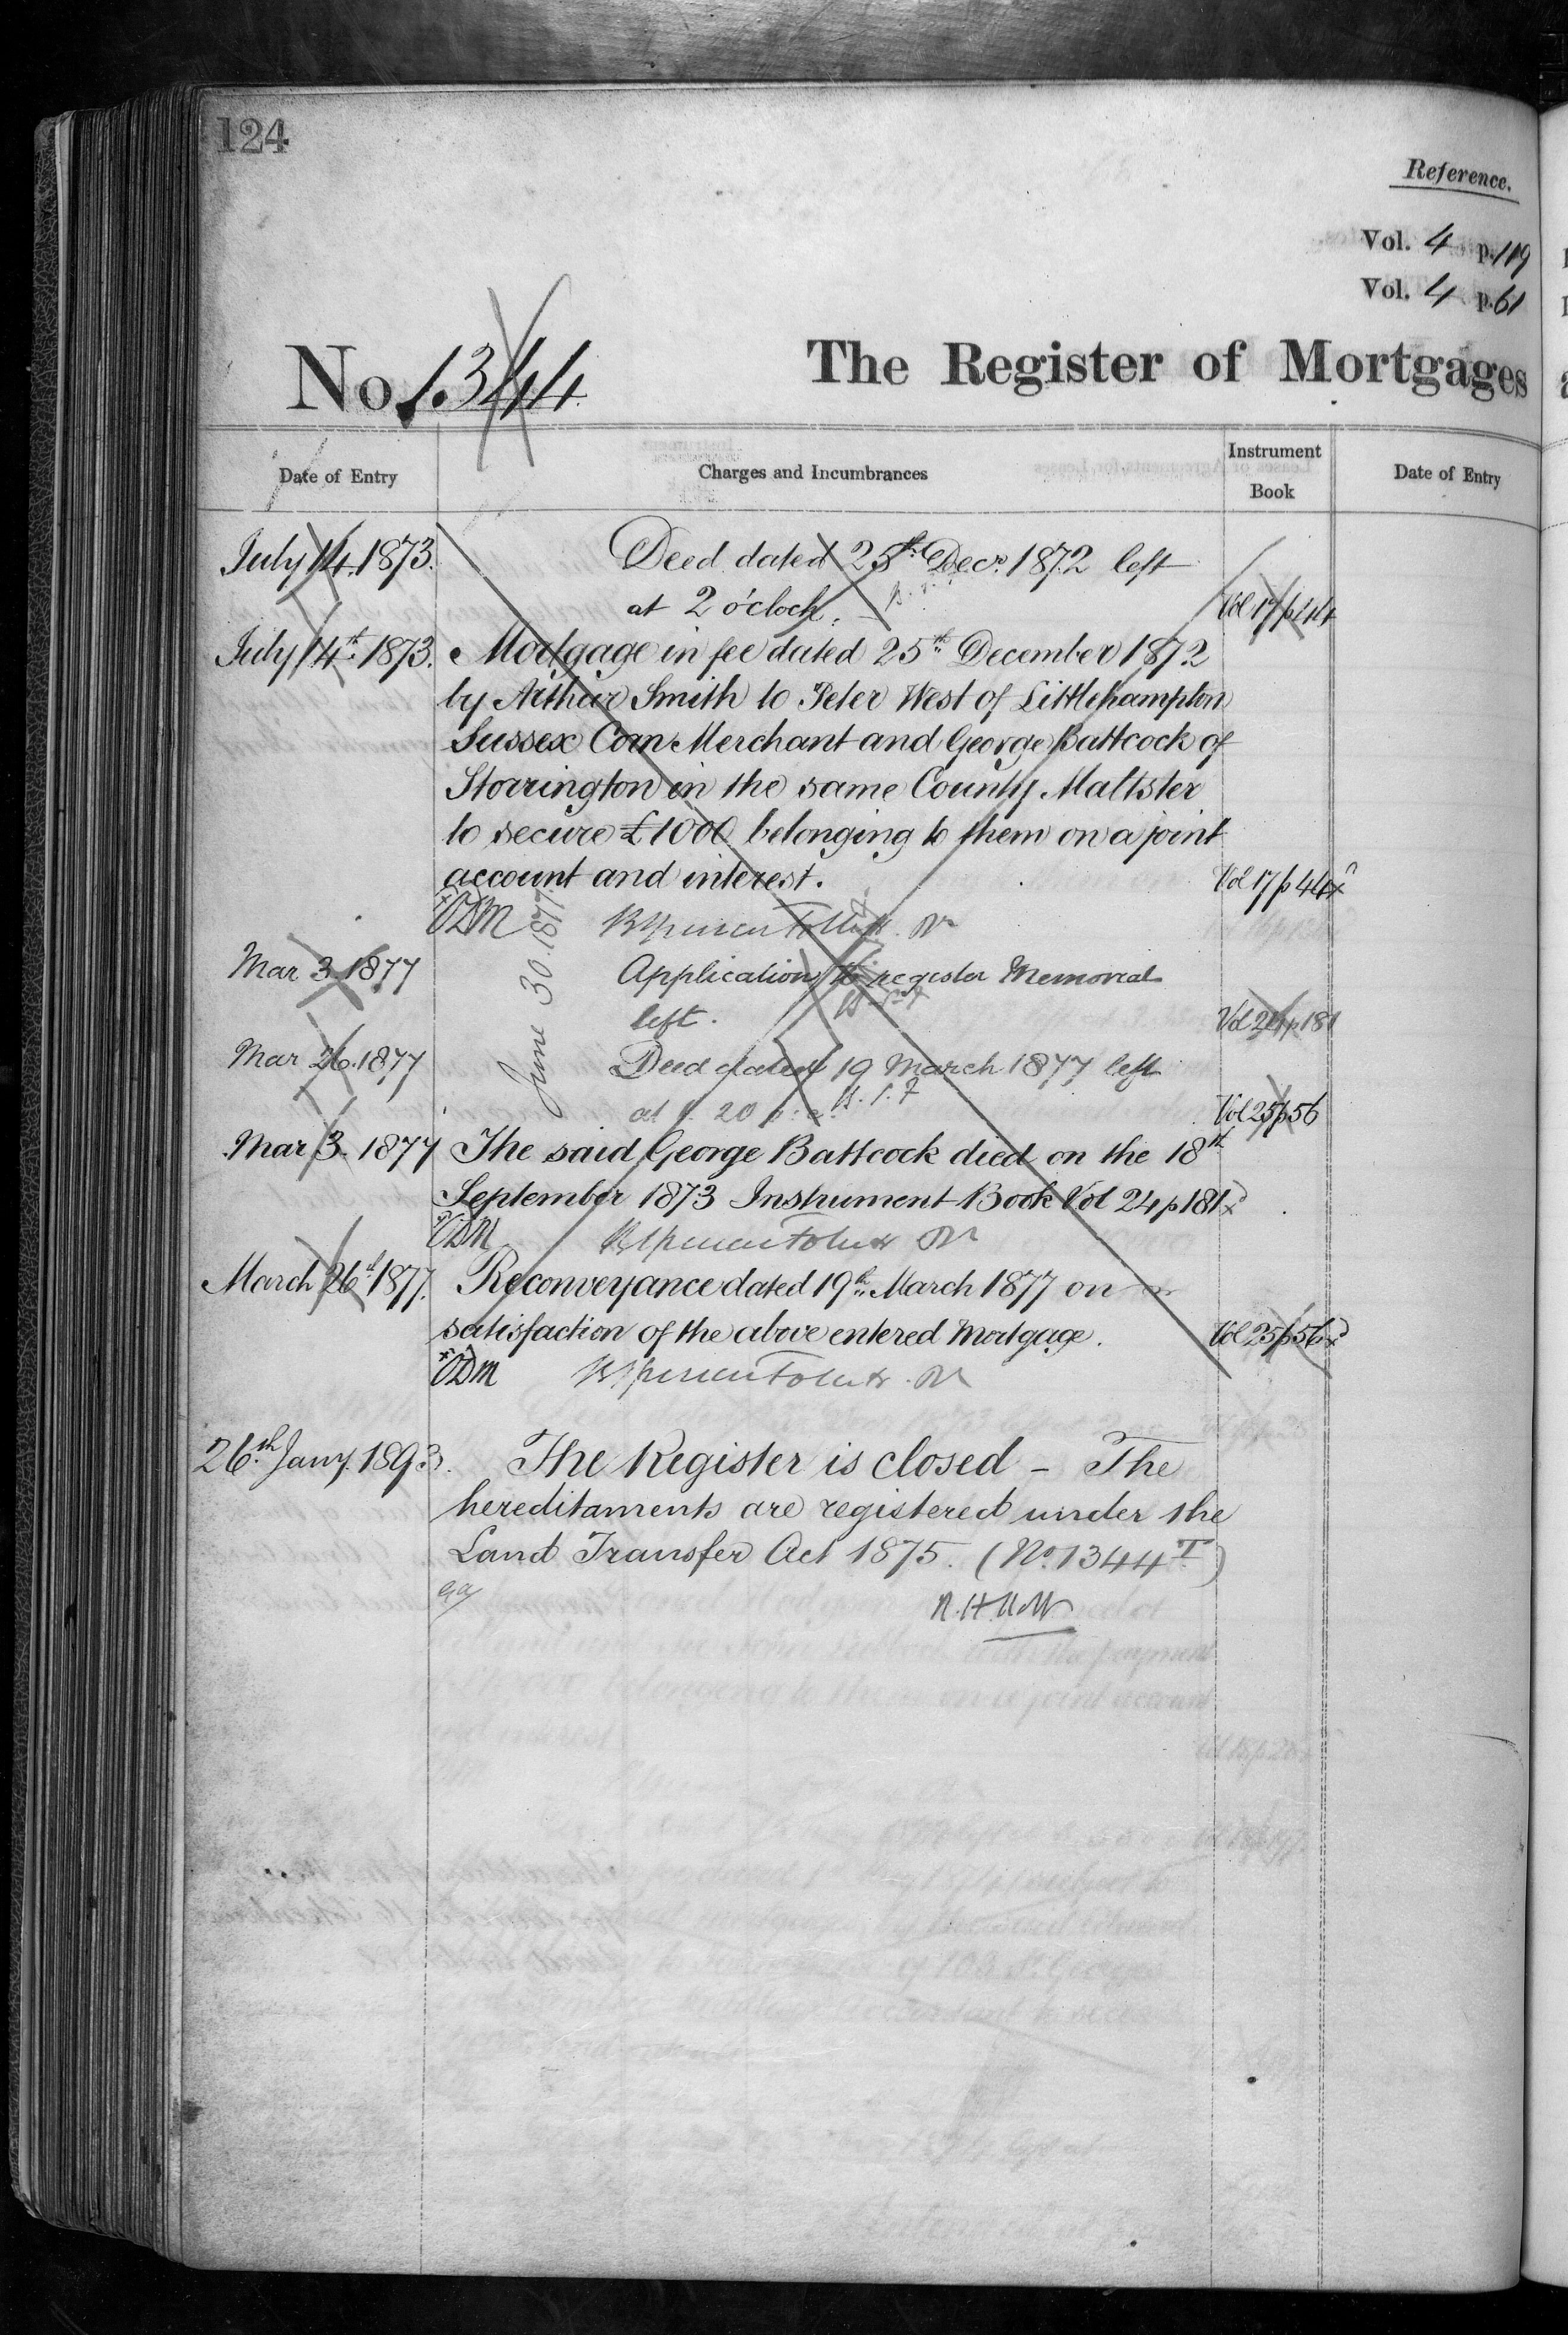 124
Reference.
Vol. 4 p. 119
Vol. 4 p. 61
No 1344 The Register of Mortgages
Date of Entry Charges and Incumbrances Instrument Book Date of Entry
July 14. 1873. Deed dated 25th Decr. 1872 left
at 2 o'clock. Vol 17 p 44
July 14th 1873. Mortgage in fee dated 25th December 1872
by Arthur Smith to Peter West of Littlehampton
Sussex Corn Merchant and George Battcock of
Storrington in the same County Maltster
to secure £1000 belonging to them on a joint
account and interest. Vol 17 p 44
June 30. 1877
Mar 3. 1877 Application to register Memorial
left. Vol 24 p 181
Mar 26. 1877 Deed dated 19 March 1877 left
at 20 Vol 25 p 56
Mar 3. 1877 The said George Battcock died on the 18th
September 1873 Instrument Book Vol 24 p 181
March 26th 1877. Reconveyance dated 19th March 1877 on
satisfaction of the above entered Mortgage. Vol 25 p 56
26th Jany. 1893. The Register is closed - The
hereditaments are registered under the
Land Transfer Act 1875. (No. 1344T)